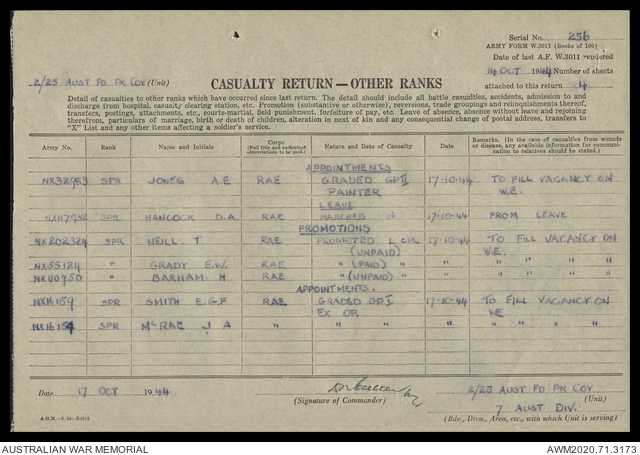 Serial No. 256
ARMY FORM W.3011 (Books of 100)
Date of last A.F. W.3011 rendered
14 OCT 1944 Number of sheets
attached to this return 14
2/25 AUST FD PK COY (Unit)
CASUALTY RETURN—OTHER RANKS
Detail of casualties to other ranks which have occurred since last return. The detail should include all battle casualties, accidents, admission to and
discharge from hospital, casualty clearing station, etc. Promotion (substantive or otherwise), reversions, trade groupings and relinquishments thereof,
transfers, postings, attachments, etc., courts-martial, field punishment, forfeiture of pay, etc. Leave of absence, absence without leave and rejoining
therefrom, particulars of marriage, birth or death of children, alteration in next of kin and any consequential change of postal address, transfers to
"X" List and any other items affecting a soldier's service.
Army No. Rank Name and Initials Corps (Full title and authorised abbreviations to be used.) Nature and Date of Casualty Date Remarks. (In the case of casualties from wounds or disease, any available information for communication to relatives should be stated.)
APPOINTMENTS
NX32983 SPR JONES A.E RAE GRADED GPII 17-10-44 TO FILL VACANCY ON
PAINTER W.E.
LEAVE
NX117932 SPR HANCOCK D.A. RAE MARCHED IN 17-10-44 FROM LEAVE
PROMOTIONS
NX202324 SPR NEILL. T RAE PROMOTED L CPL 17-10-44 TO FILL VACANCY ON
(UNPAID) W.E.
NX55124 " GRADY E.W. RAE " (PAID) " " " "
NX110950 " BARHAM. H RAE " (UNPAID) " " " "
APPOINTMENTS.
NX16159 SPR SMITH E.G.F RAE GRADED GPI 17-10-44 TO FILL VACANCY ON
EX OP. WE
SPR McRAE J A " " " " " " "
Date 17 OCT 1944
(Signature of Commander)
2/25 AUST FD PK COY
(Unit)
7 AUST DIV.
(Bde., Divn., Area, etc., with which Unit is serving)
AUSTRALIAN WAR MEMORIAL
AWM2020.71.3173